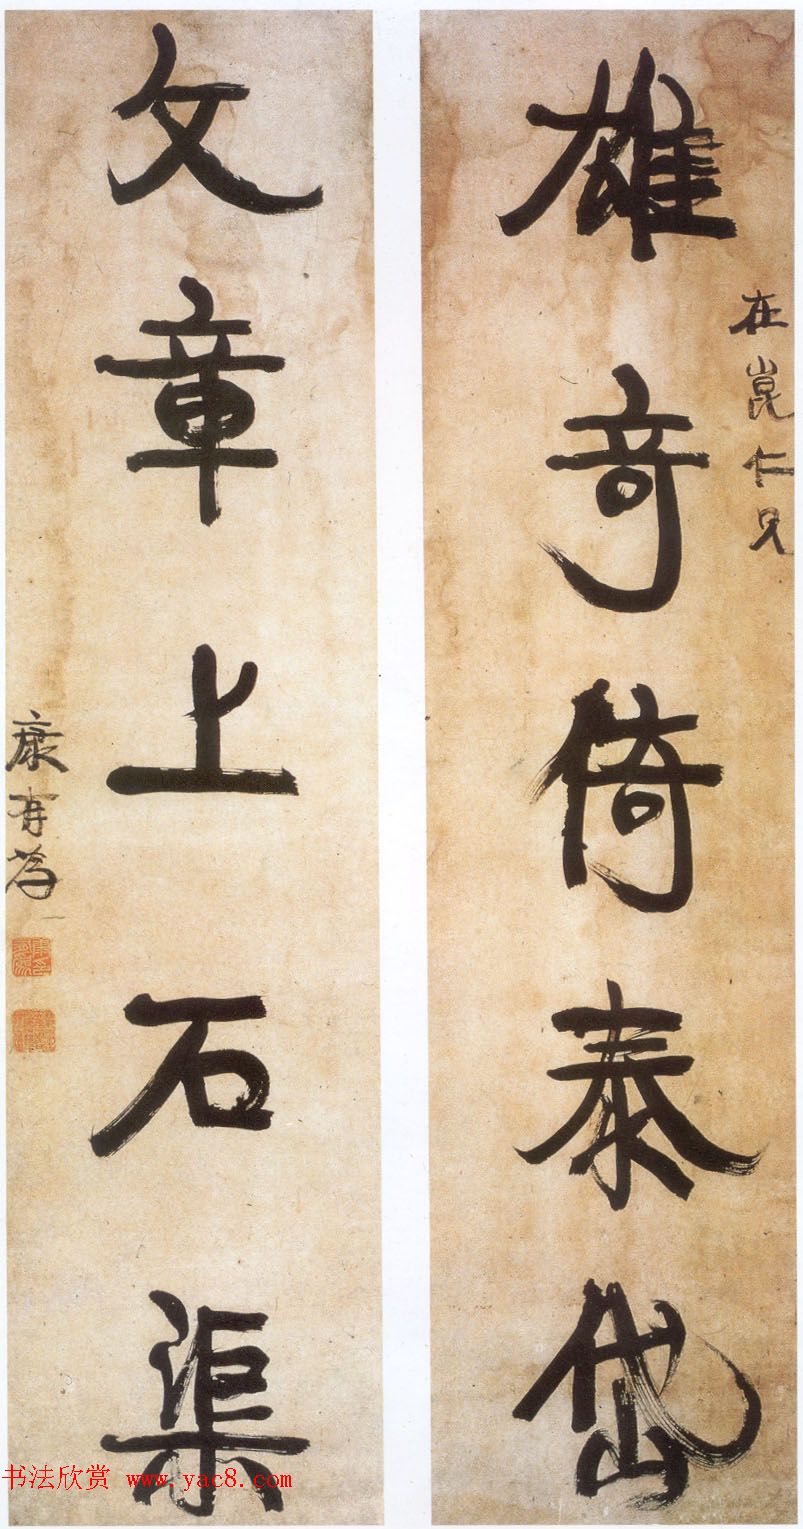 在崑仁兄
雄奇倚泰岱
文章上石渠
康有為
书法欣赏 www.yac8.com